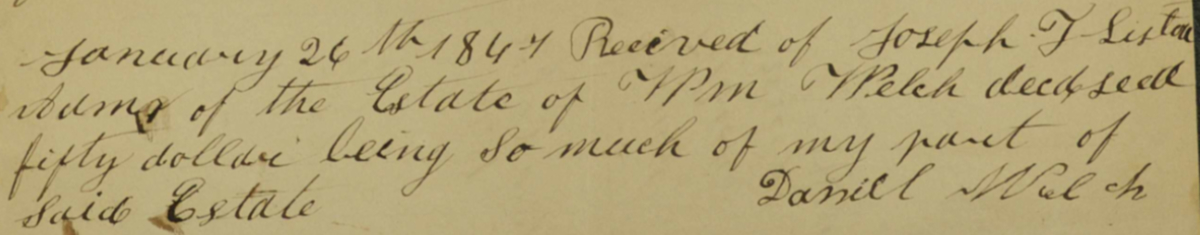 January 26th 1847 Received of Joseph T Lister
Admr of the Estate of Wm Welch deceseed
fifty dollari being so much of my part of
said Estate Daniel Welch